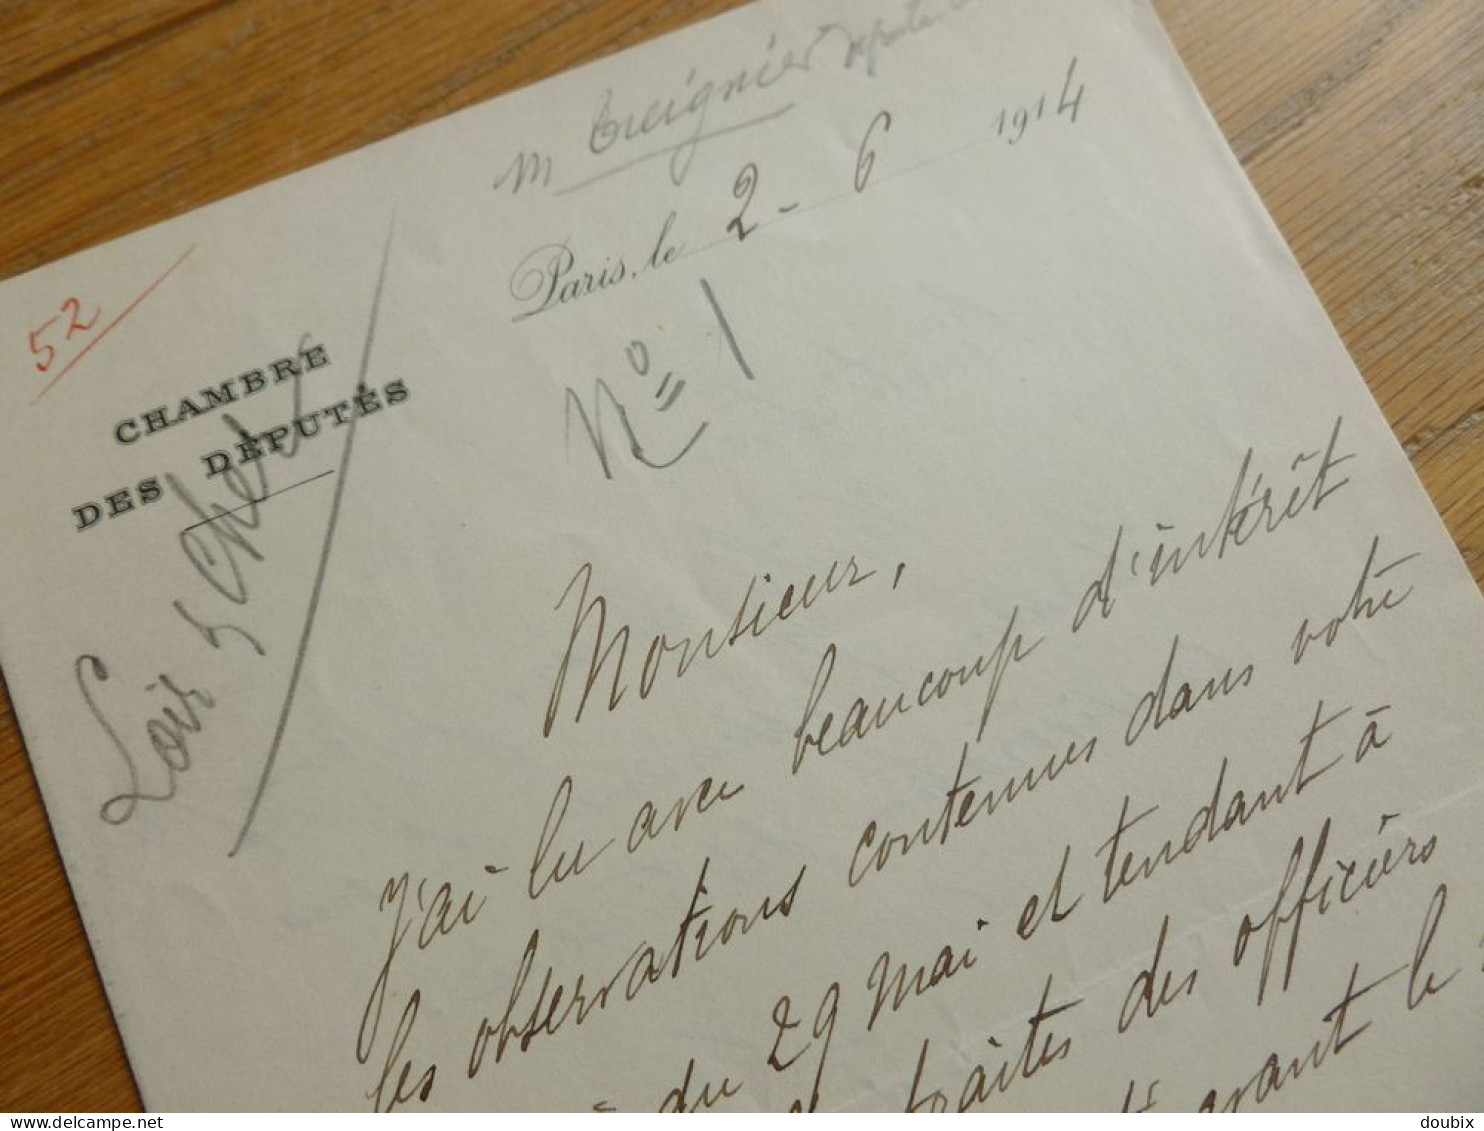 m Treignier député
52
Paris, le 2 - 6 1914
CHAMBRE
DES DÉPUTÉS
Loir & Cher
N° 1
Monsieur,
J'ai lu avec beaucoup d'intérêt
les observations contenues dans votre
du 29 mai et tendant à
traites des officiers
avant le
delcampe.net
doubix